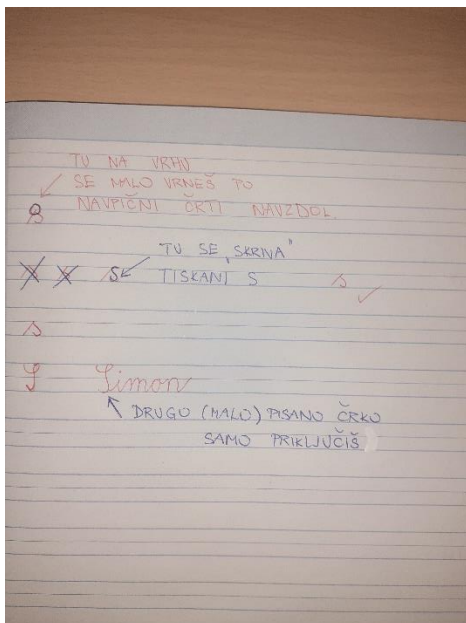 TU NA VRHU
SE MALO VRNEŠ PO
NAVPIČNI ČRTI NAVZDOL.
s
TU SE „SKRIVA“
s s s TISKANI S s
s
S Simon
DRUGO (MALO) PISANO ČRKO
SAMO PRIKLJUČIŠ